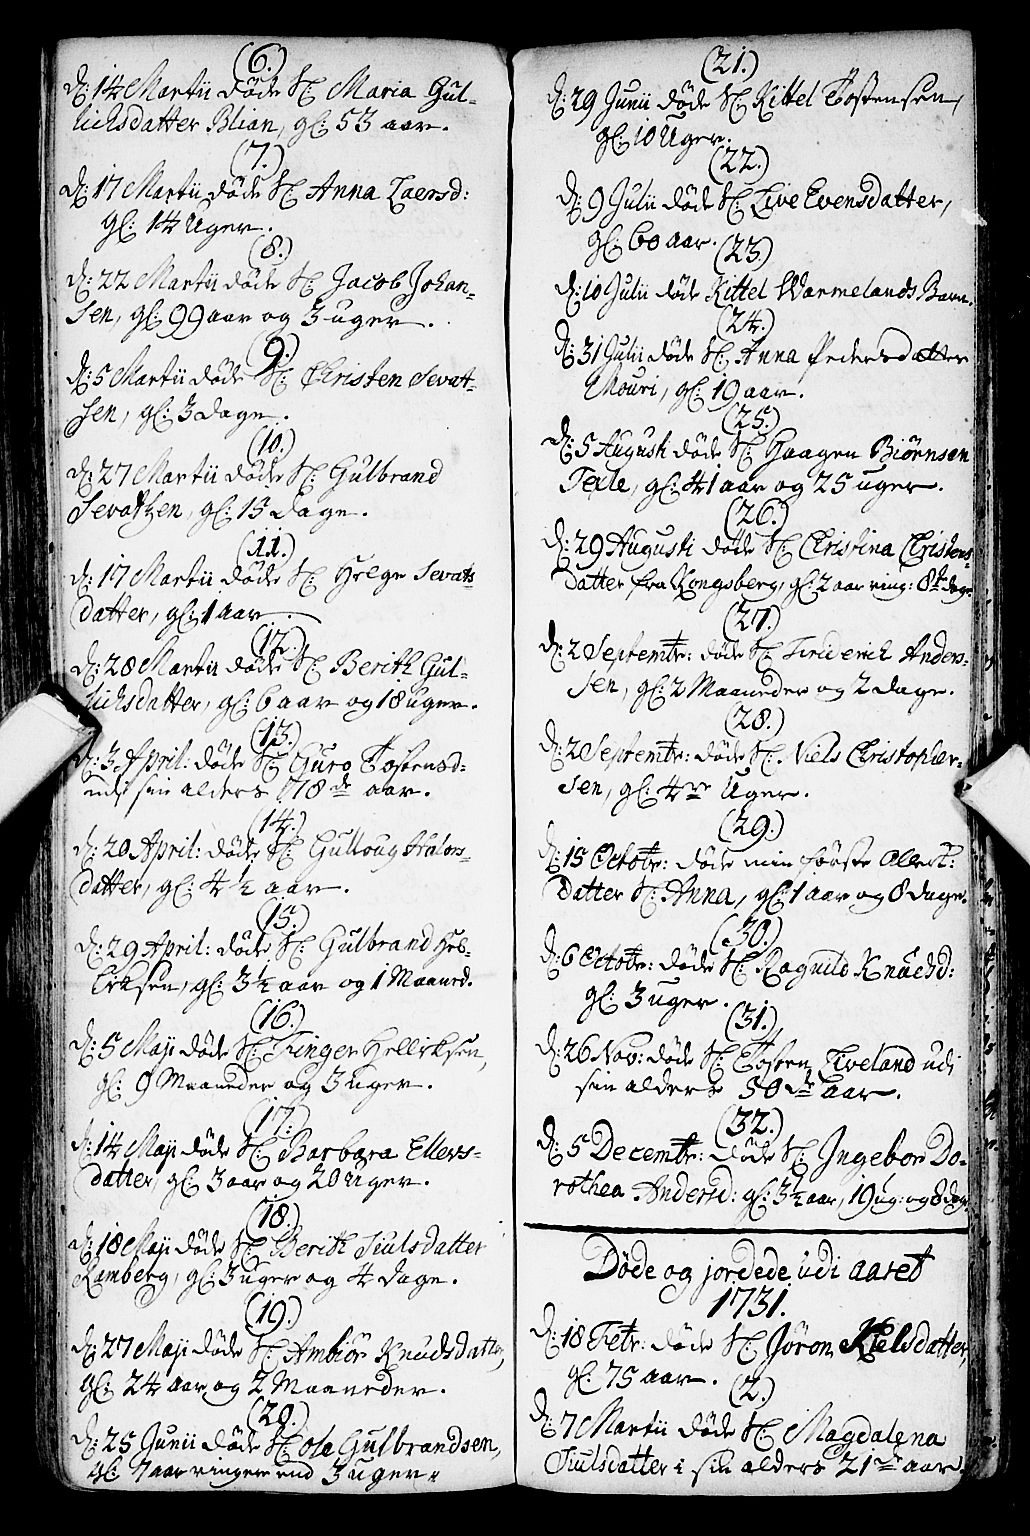 (6.)
d: 14 Martii døde Sl: Maria Gul-
lichsdatter Blian, gl: 53 aar.
(7.)
d: 17 Martii døde Sl: Anna Laersd:
gl: 14 Uger.
(8.)
d: 22 Martii døde Sl: Jacob Johan-
sen, gl: 99 aar og 3 uger.
(9.)
d: 5 Martii døde Sl: Christen Sevat-
sen, gl: 3 dage.
(10.)
d: 27 Martii døde Sl: Gulbrand
Sevatsen, gl: 15 dage.
(11.)
d: 17 Martii døde Sl: Helge Sevats
datter, gl: 1 aar
(12.)
d: 28 Martii døde Sl: Berith Gul-
lichsdatter, gl: 6 aar og 18 uger.
(13.)
d: 3 April: døde Sl: Guro Tostensd=
udi sin alders 78de aar.
(14.)
d: 20 April: døde Sl: Gulloug Halvors-
datter, gl: 4 1/2 aar.
(15.)
d: 29 April: døde Sl: Gulbrand Hel-
leksen, gl: 3 1/2 aar og 1 Maaned.
(16.)
d: 5 Maji døde Sl: Finger Hellichsen,
gl: 9 Maaneder og 3 uger.
(17.)
d: 14 Maji døde Sl: Barbara Ellers-
datter, gl: 3 aar og 20 Uger.
(18.)
d: 18 Maji døde Sl: Berith Juulsdatter
Ramberg, gl: 3 uger og 4 dage.
(19.)
d: 27 Maji døde Sl: Ambiør Knudsdatter,
gl: 24 aar og 2 Maaneder.
(20.)
d: 25 Junii døde Sl: Ole Gulbrandsen,
gl: 7 aar ringere end 3 uger.
(21.)
d: 29 Junii døde Sl: Kittel Tostensen,
gl: 10 Uger.
(22.)
d: 9 Julii døde Sl: Live Evensdatter,
gl: 60 aar.
(23.)
d: 10 Julii døde Kittel Warmelands Barn.
(24.)
d: 31 Julii døde Sl: Anna Pedersdatter
Mouri, gl: 19 aar.
(25.)
d: 5 Augusti døde Sl: Haagen Biørnsen
Texle, gl: 41 aar og 25 uger.
(26.)
d: 29 Augusti døde Sl: Christina Christens-
datter fra Kongsberg, gl: 2 aar ring: 8te dage
(27.)
d: 2 Septembr: døde Sl: Friderich Anders-
sen, gl: 2 Maaneder og 2 dage.
(28.)
d: 2 Septembr: døde Sl: Niels Christopher-
sen, gl: 4re Uger.
(29.)
d: 15 Octobr: døde min første Allert:
datter Sl: Anna, gl: 1 aar og 8 dage.
(30.)
d: 6 Octobr: døde Sl: Ragnild Knudsd:
gl: 3 uger.
(31.)
d: 26 Nov: døde Sl: Tosten Liveland udi
sin alders 50de aar.
(32.)
d: 5 Decembr: døde Sl: Ingebor Do-
rothea Andersd: gl: 3 1/2 aar, 19 ug: og 8 dage
Døde og jordede udi aaret
1731.
d: 18 Febr: døde Sl: Jøron Kielsdatter,
gl: 75 aar.
(2.)
d: 7 Martii døde Sl: Magdalena
Juulsdatter i sin alders 21de aar.